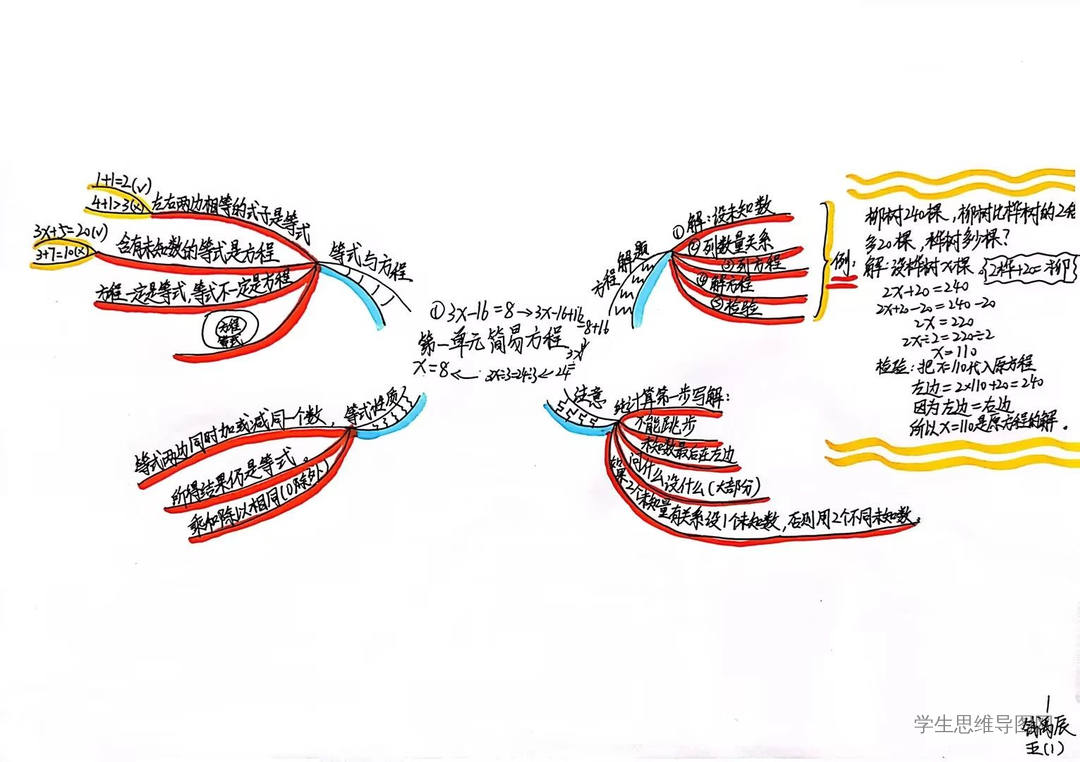 ①3x-16=8→3x-16+16
=8+16
第一单元简易方程
3x
x=8←3x÷3=24÷3←24=
等式与方程
左右两边相等的式子是等式
1+1=2(√)
4+1>3(×)
含有未知数的等式是方程
3x+5=20(√)
3+7=10(×)
方程一定是等式,等式不一定是方程
方程
等式
等式性质
等式两边同时加或减同一个数,
所得结果仍是等式。
乘和除以相同(0除外)
方程 解题
①解:设未知数
②列数量关系
③列方程
④解方程
⑤检验
例:
柳树240棵,柳树比桦树的2倍
多20棵,桦树多少棵?
解:设桦树x棵 2桦+20=柳
2x+20=240
2x+20-20=240-20
2x=220
2x÷2=220÷2
x=110
检验:把x=110代入原方程
左边=2×110+20=240
因为左边=右边
所以x=110是原方程的解。
注意
计算第一步写解:
不能跳步
未知数最后在左边
问什么设什么(大部分)
如果2个未知量有关系设1个未知数,否则用2个不同未知数。
学生思维导图
禹辰
五(1)